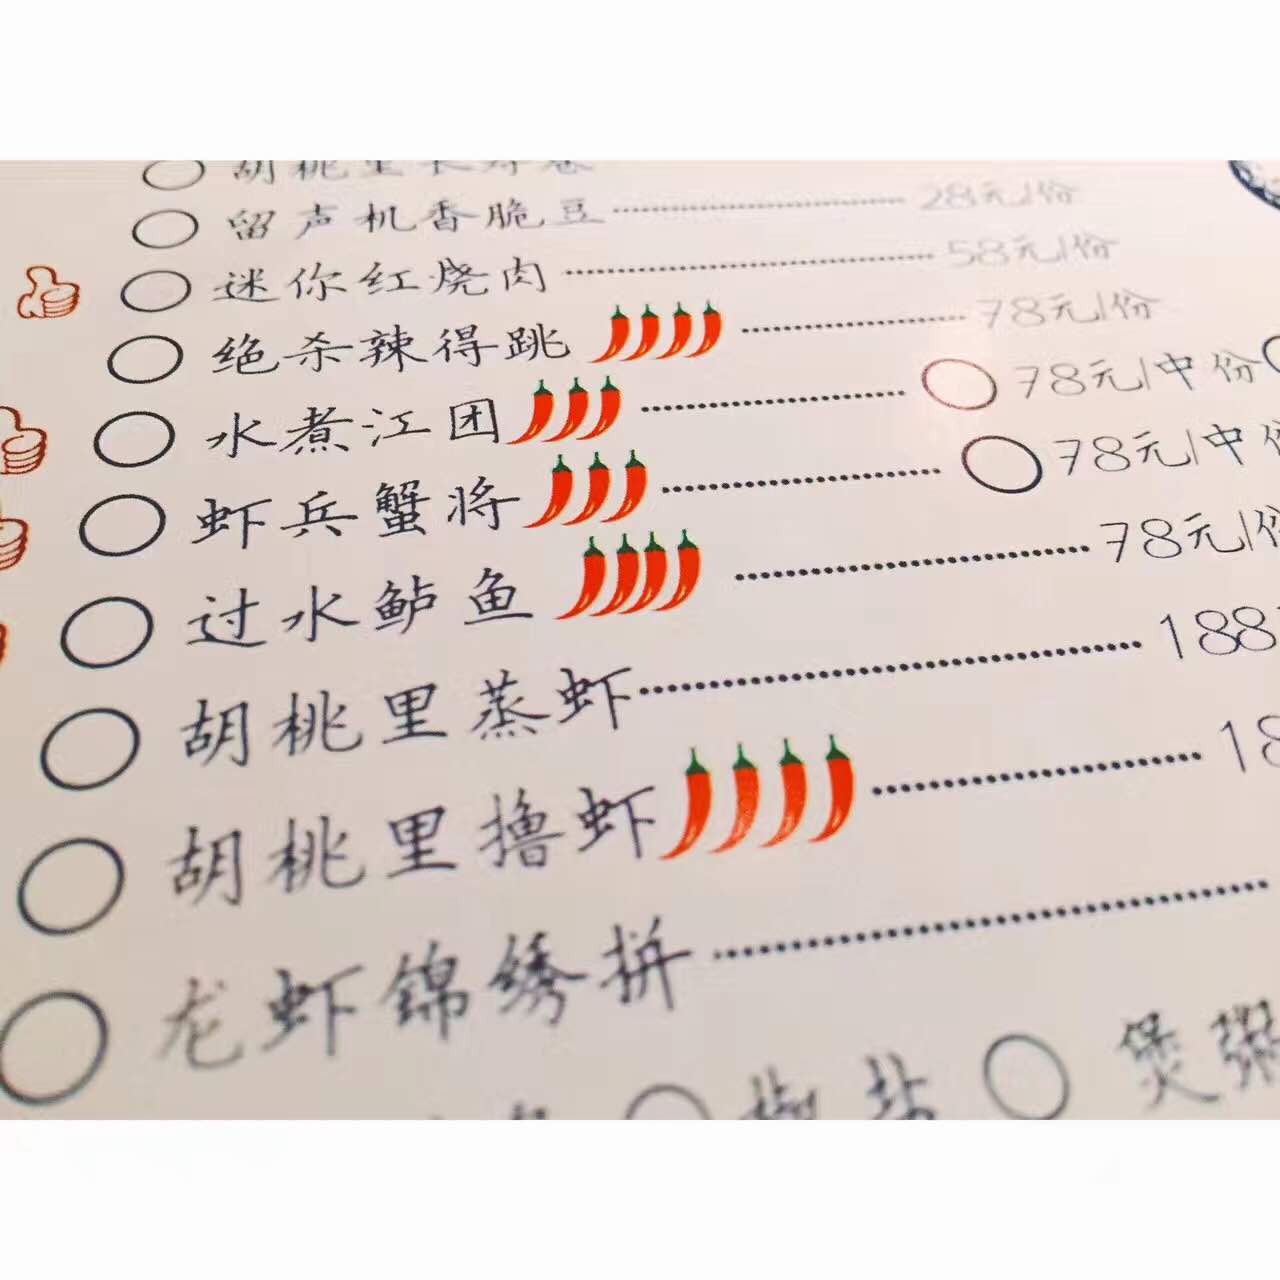 胡桃里
留声机香脆豆 28元/份
迷你红烧肉 58元/份
绝杀辣得跳 78元/份
水煮江团 78元/中份
虾兵蟹将 78元/中份
过水鲈鱼 78元/份
胡桃里蒸虾 188
胡桃里撸虾 18
龙虾锦绣拼
椒盐 煲粥